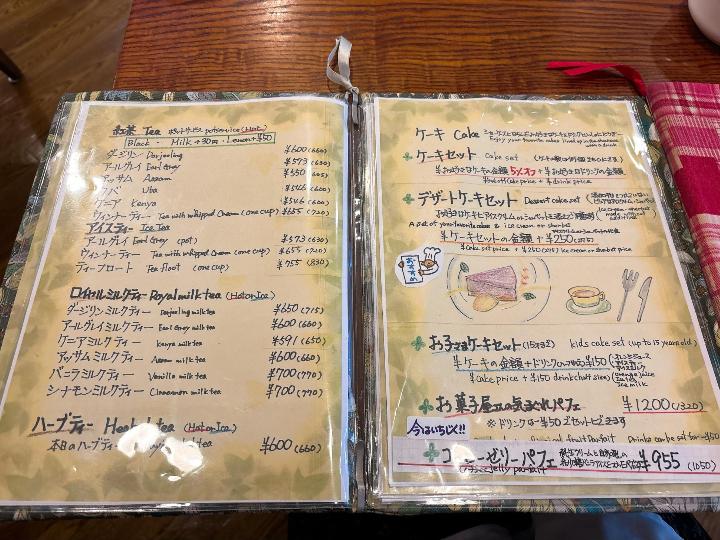 紅茶 Tea ポットサービス potservice (Hot)
Black ・ Milk +30円 ・ Lemon +¥50
ダージリン Darjeeling ¥600 (660)
アールグレイ Earl Grey ¥573 (630)
アッサム Assam ¥550 (605)
ウバ Uba ¥546 (600)
ケニア Kenya ¥546 (600)
ウィンナーティー Tea with whipped Cream (one cup) ¥655 (720)
アイスティー Ice Tea
アールグレイ Earl Grey (pot) ¥573 (630)
ウィンナーティー Tea with whipped Cream (one cup) ¥655 (720)
ティーフロート Tea float (one cup) ¥755 (830)
ロイヤルミルクティー Royal milk tea (Hot or Ice)
ダージリンミルクティー Darjeeling milk tea ¥650 (715)
アールグレイミルクティー Earl Grey milk tea ¥600 (660)
ケニアミルクティー Kenya milk tea ¥591 (650)
アッサムミルクティー Assam milk tea ¥600 (660)
バニラミルクティー Vanilla milk tea ¥700 (770)
シナモンミルクティー Cinnamon milk tea ¥700 (770)
ハーブティー Herbal tea (Hot or Ice)
本日のハーブティー tea ¥600 (660)
ケーキ Cake
Enjoy your favorite cakes lined up in the showcase with a drink
ケーキセット Cake set
¥お好きなケーキの金額 5%オフ + ¥お好きなドリンクの金額
cake price + ¥ drink price
デザートケーキセット Dessert cake set
お好きなケーキとアイスクリーム or シャーベット
A set of your favorite cake & ice cream or sherbet
¥ケーキセットの金額 + ¥250
¥cake set price + ¥250 ice cream or sherbet price
おすすめ
お子さまケーキセット (15才まで) kids cake set (up to 15 years old)
¥ケーキの金額 + ドリンク ¥150
¥cake price + ¥150 drink
orange juice
Ice tea
Ice milk
お菓子屋さんの気まぐれパフェ ¥1200 (1320)
※ドリンクは−¥50でセットできます
今はいちじく!!
fruit Parfait Drinks can be set for −¥50
コーヒーゼリーパフェ ¥955 (1050)
jelly parfait